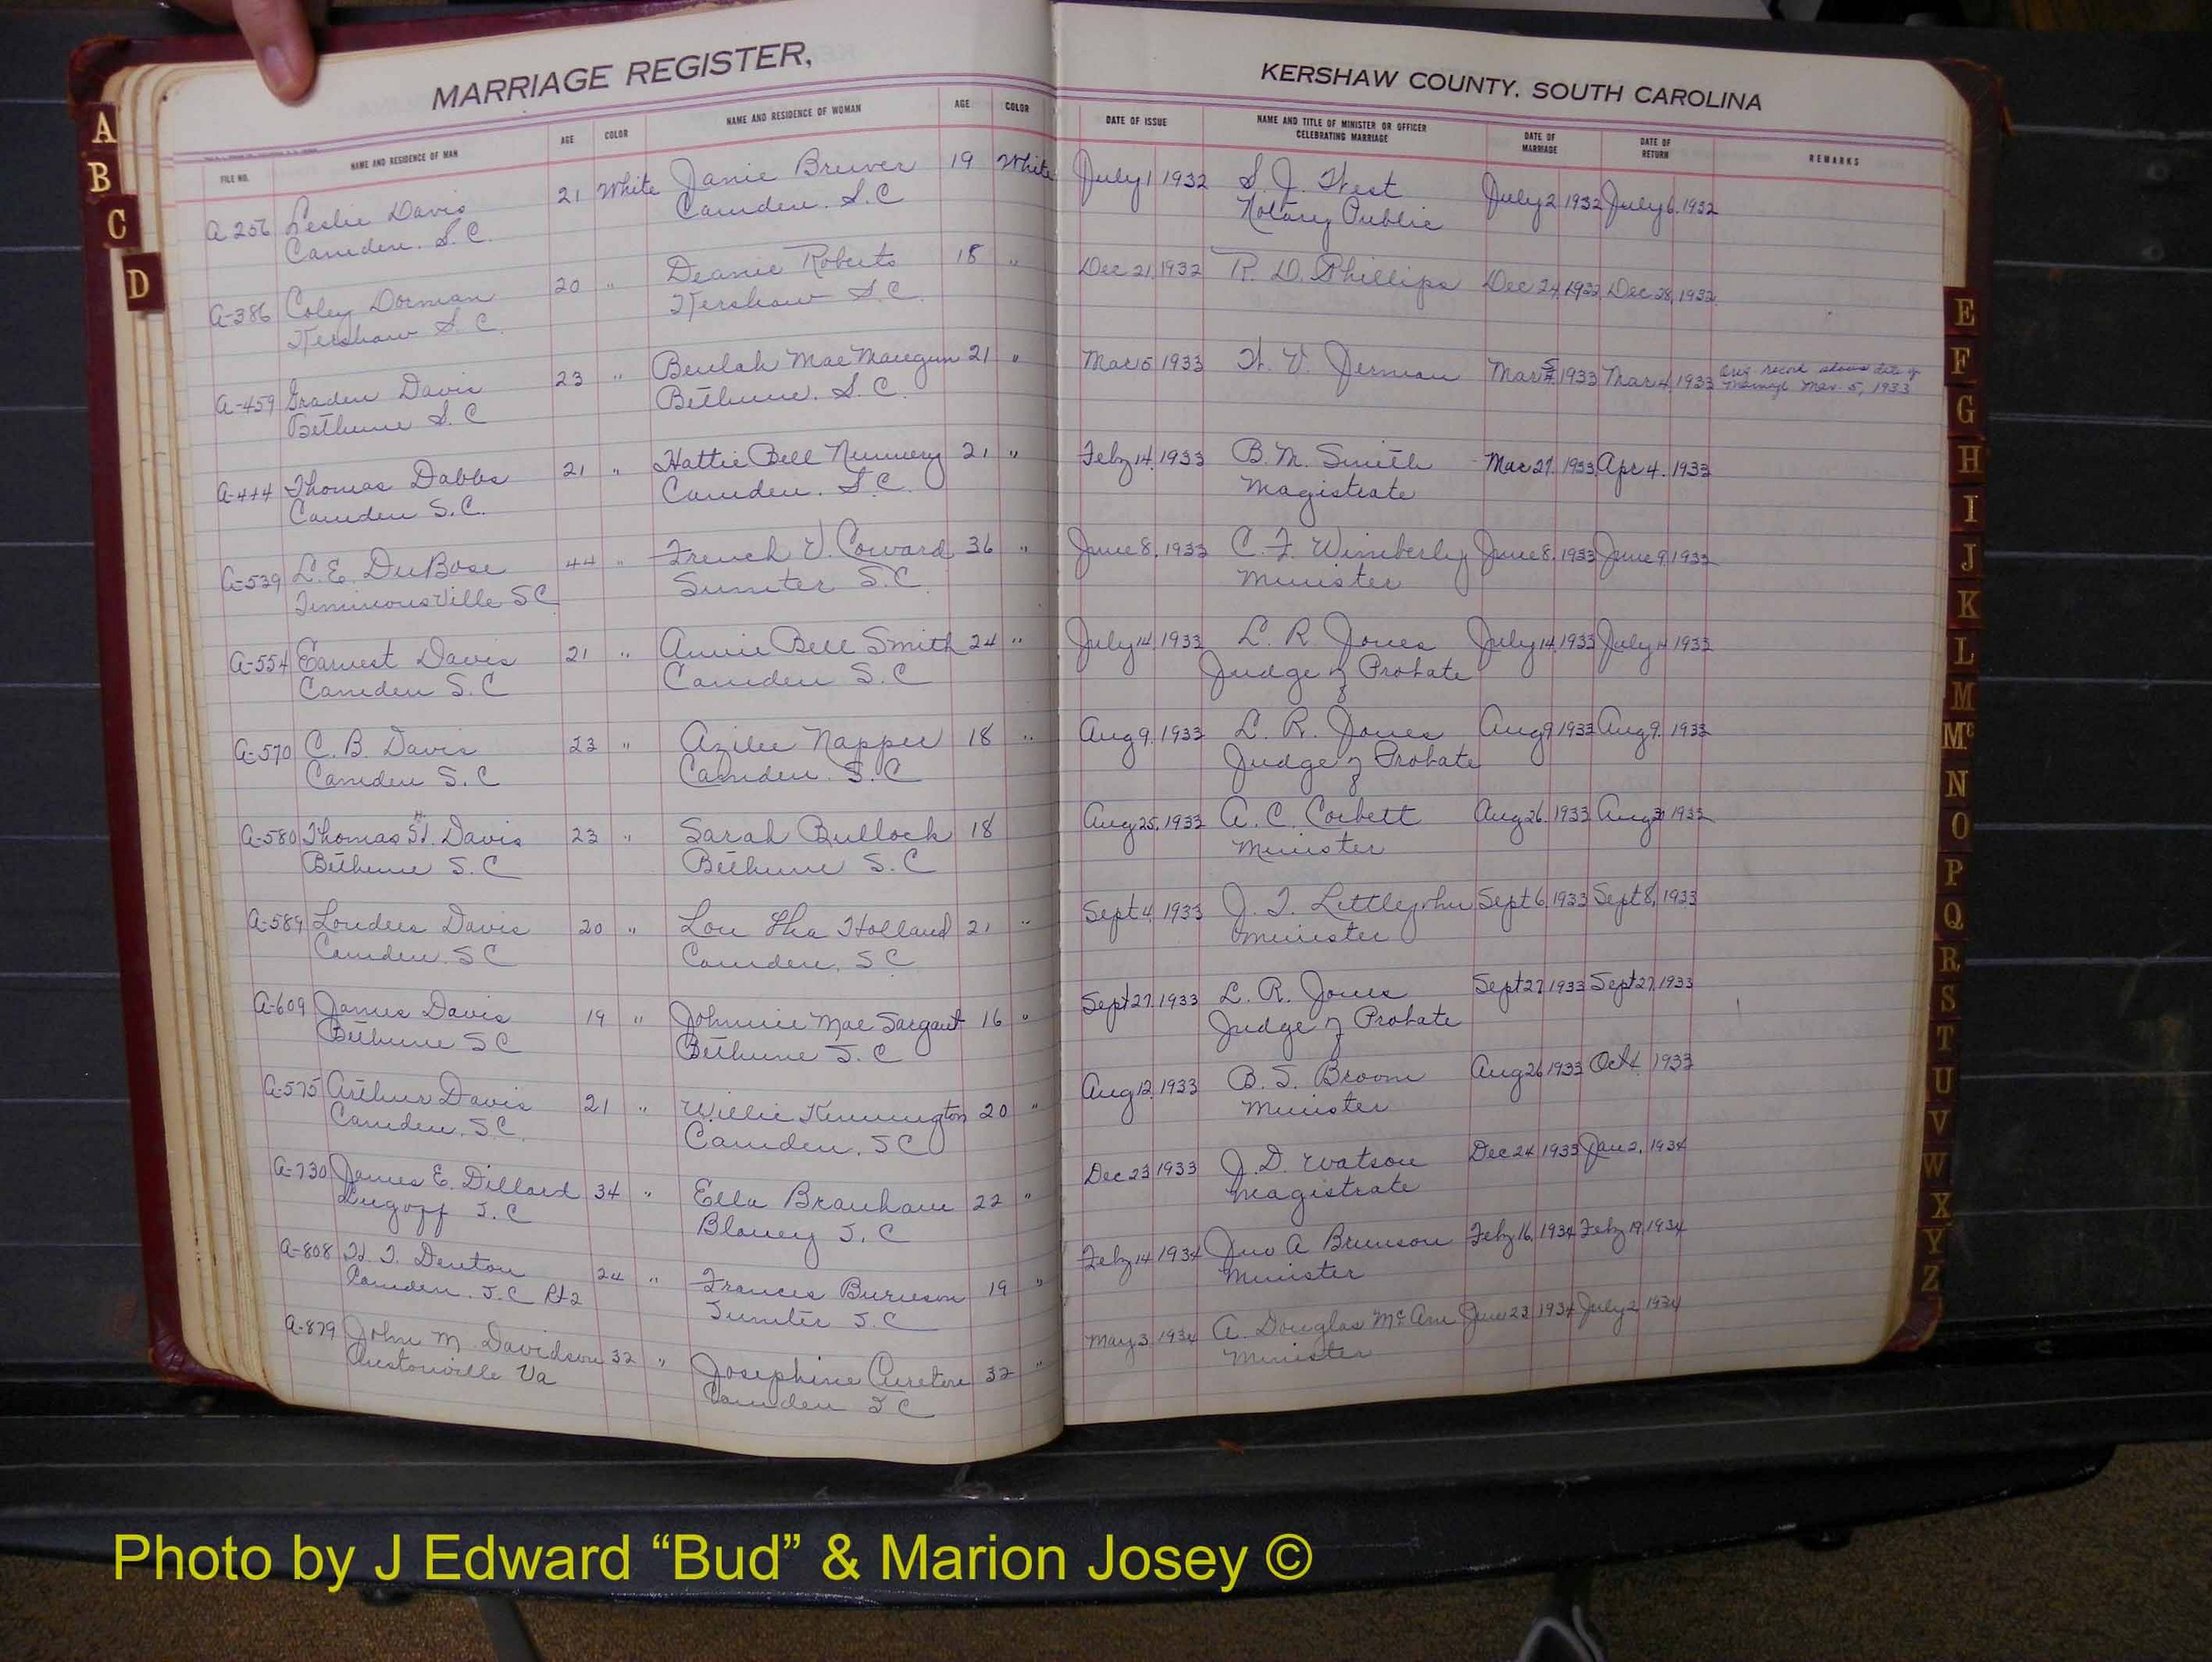 MARRIAGE REGISTER,
KERSHAW COUNTY, SOUTH CAROLINA
FILE NO. NAME AND RESIDENCE OF MAN AGE COLOR NAME AND RESIDENCE OF WOMAN AGE COLOR DATE OF ISSUE NAME AND TITLE OF MINISTER OR OFFICER CELEBRATING MARRIAGE DATE OF MARRIAGE DATE OF RETURN REMARKS
A 256 Leslie Davis 21 White Janie Bruver 19 White July 1 1932 S. J. West July 2 1932 July 6 1932
Camden. S.C. Camden. S.C Notary Public
A-386 Coley Dorman 20 " Deanie Roberts 18 " Dec 21, 1932 R. D. Phillips Dec 24, 1932 Dec 28, 1932
Kershaw S.C. Kershaw S.C.
A-459 Graden Davis 23 " Beulah Mae Mangum 21 " Mar 5 1933 W. V. Jerman Mar 5 1933 Mar 4, 1933 orig. record shows date of
Bethune S.C Bethune. S.C. Marriage Mar. 5, 1933
A-444 Thomas Dabbs 21 " Hattie Bell Nunnery 21 " Feby 14, 1933 B. M. Smith Mar 27, 1933 Apr 4, 1933
Camden S.C. Camden. S.C. Magistrate
A-539 L. E. DuBose 44 " French V. Coward 36 " June 8, 1933 C. F. Wimberly June 8, 1933 June 9, 1933
Timmonsville SC Sumter S.C Minister
A-554 Earnest Davis 21 " Annie Bell Smith 24 " July 14, 1933 L. R. Jones July 14, 1933 July 14 1933
Camden S.C Camden S.C Judge of Probate
A-570 C. B. Davis 23 " Azilee Napper 18 " Aug 9, 1933 L. R. Jones Aug 9 1933 Aug 9, 1933
Camden S.C Camden. S.C Judge of Probate
A-580 Thomas H. Davis 23 " Sarah Bullock 18 Aug 25, 1933 A. C. Corbett Aug 26, 1933 Aug 31 1933
Bethune S.C Bethune S.C Minister
A-589 Louders Davis 20 " Lou Holland 21 " Sept 4, 1933 J. T. Littlejohn Sept 6, 1933 Sept 8, 1933
Camden. SC Camden, SC Minister
A-609 James Davis 19 " Johnnie Mae Sargant 16 " Sept 27, 1933 L. R. Jones Sept 27 1933 Sept 27, 1933
Bethune SC Bethune S.C Judge of Probate
A-575 Arthur Davis 21 " Willie Kennington 20 " Aug 12, 1933 B. S. Broom Aug 26 1933 Oct 4 1933
Camden, SC. Camden, SC Minister
A-730 James E. Dillard 34 " Ella Branham 22 " Dec 23 1933 J. D. Watson Dec 24 1933 Jan 2, 1934
Lugoff S.C Blaney S.C Magistrate
A-808 H. T. Denton 24 " Frances Burleson 19 " Feby 14 1934 Jno A Brunson Feby 16, 1934 Feby 19, 1934
Camden, S.C Rt 2 Sumter S.C Minister
A-879 John M. Davidson 32 " Josephine Cureton 32 " May 3, 1934 A. Douglas McArn June 23, 1934 July 2 1934
Austonville Va Camden S C Minister
A
B
C
D
E
F
G
H
I
J
K
L
M
Mc
N
O
P
Q
R
S
T
U
V
W
X
Y
Z
Photo by J Edward “Bud” & Marion Josey ©